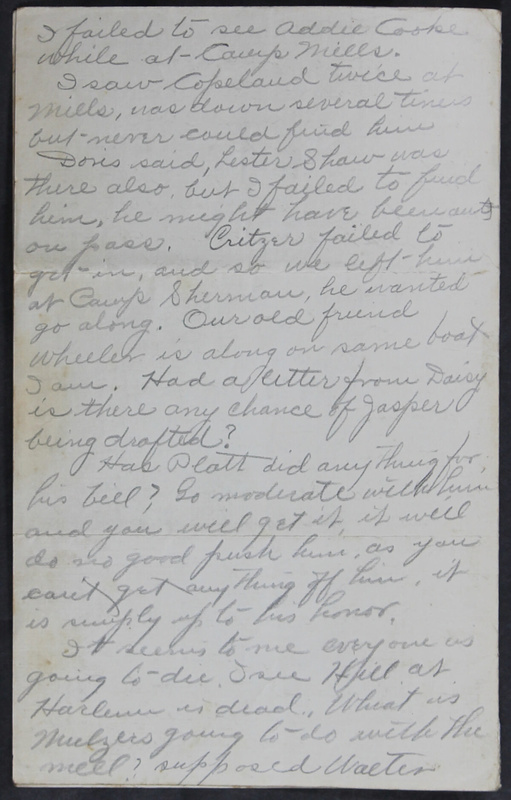 I failed to see Addie Cooke
while at Camp Mills.
I saw Copeland twice at
Mills, was down several times
but never could find him
Doris said, Lester Shaw was
there also, but I failed to find
him, he might have been out
on pass. Critzer failed to
get in, and so we left him
at Camp Sherman, he wanted
go along. Our old friend
Wheeler is along on same boat
I am. Had a letter from Daisy
is there any chance of Jasper
being drafted?
Has Platt did anything for
his bill? Go moderate with him
and you will get it, it will
do no good push him, as you
can't get anything off him, it
is simply up to his honor.
It seems to me everyone is
going to die. I see Hill at
Harlem is dead. What is
going to do with the
mill? supposed Walter